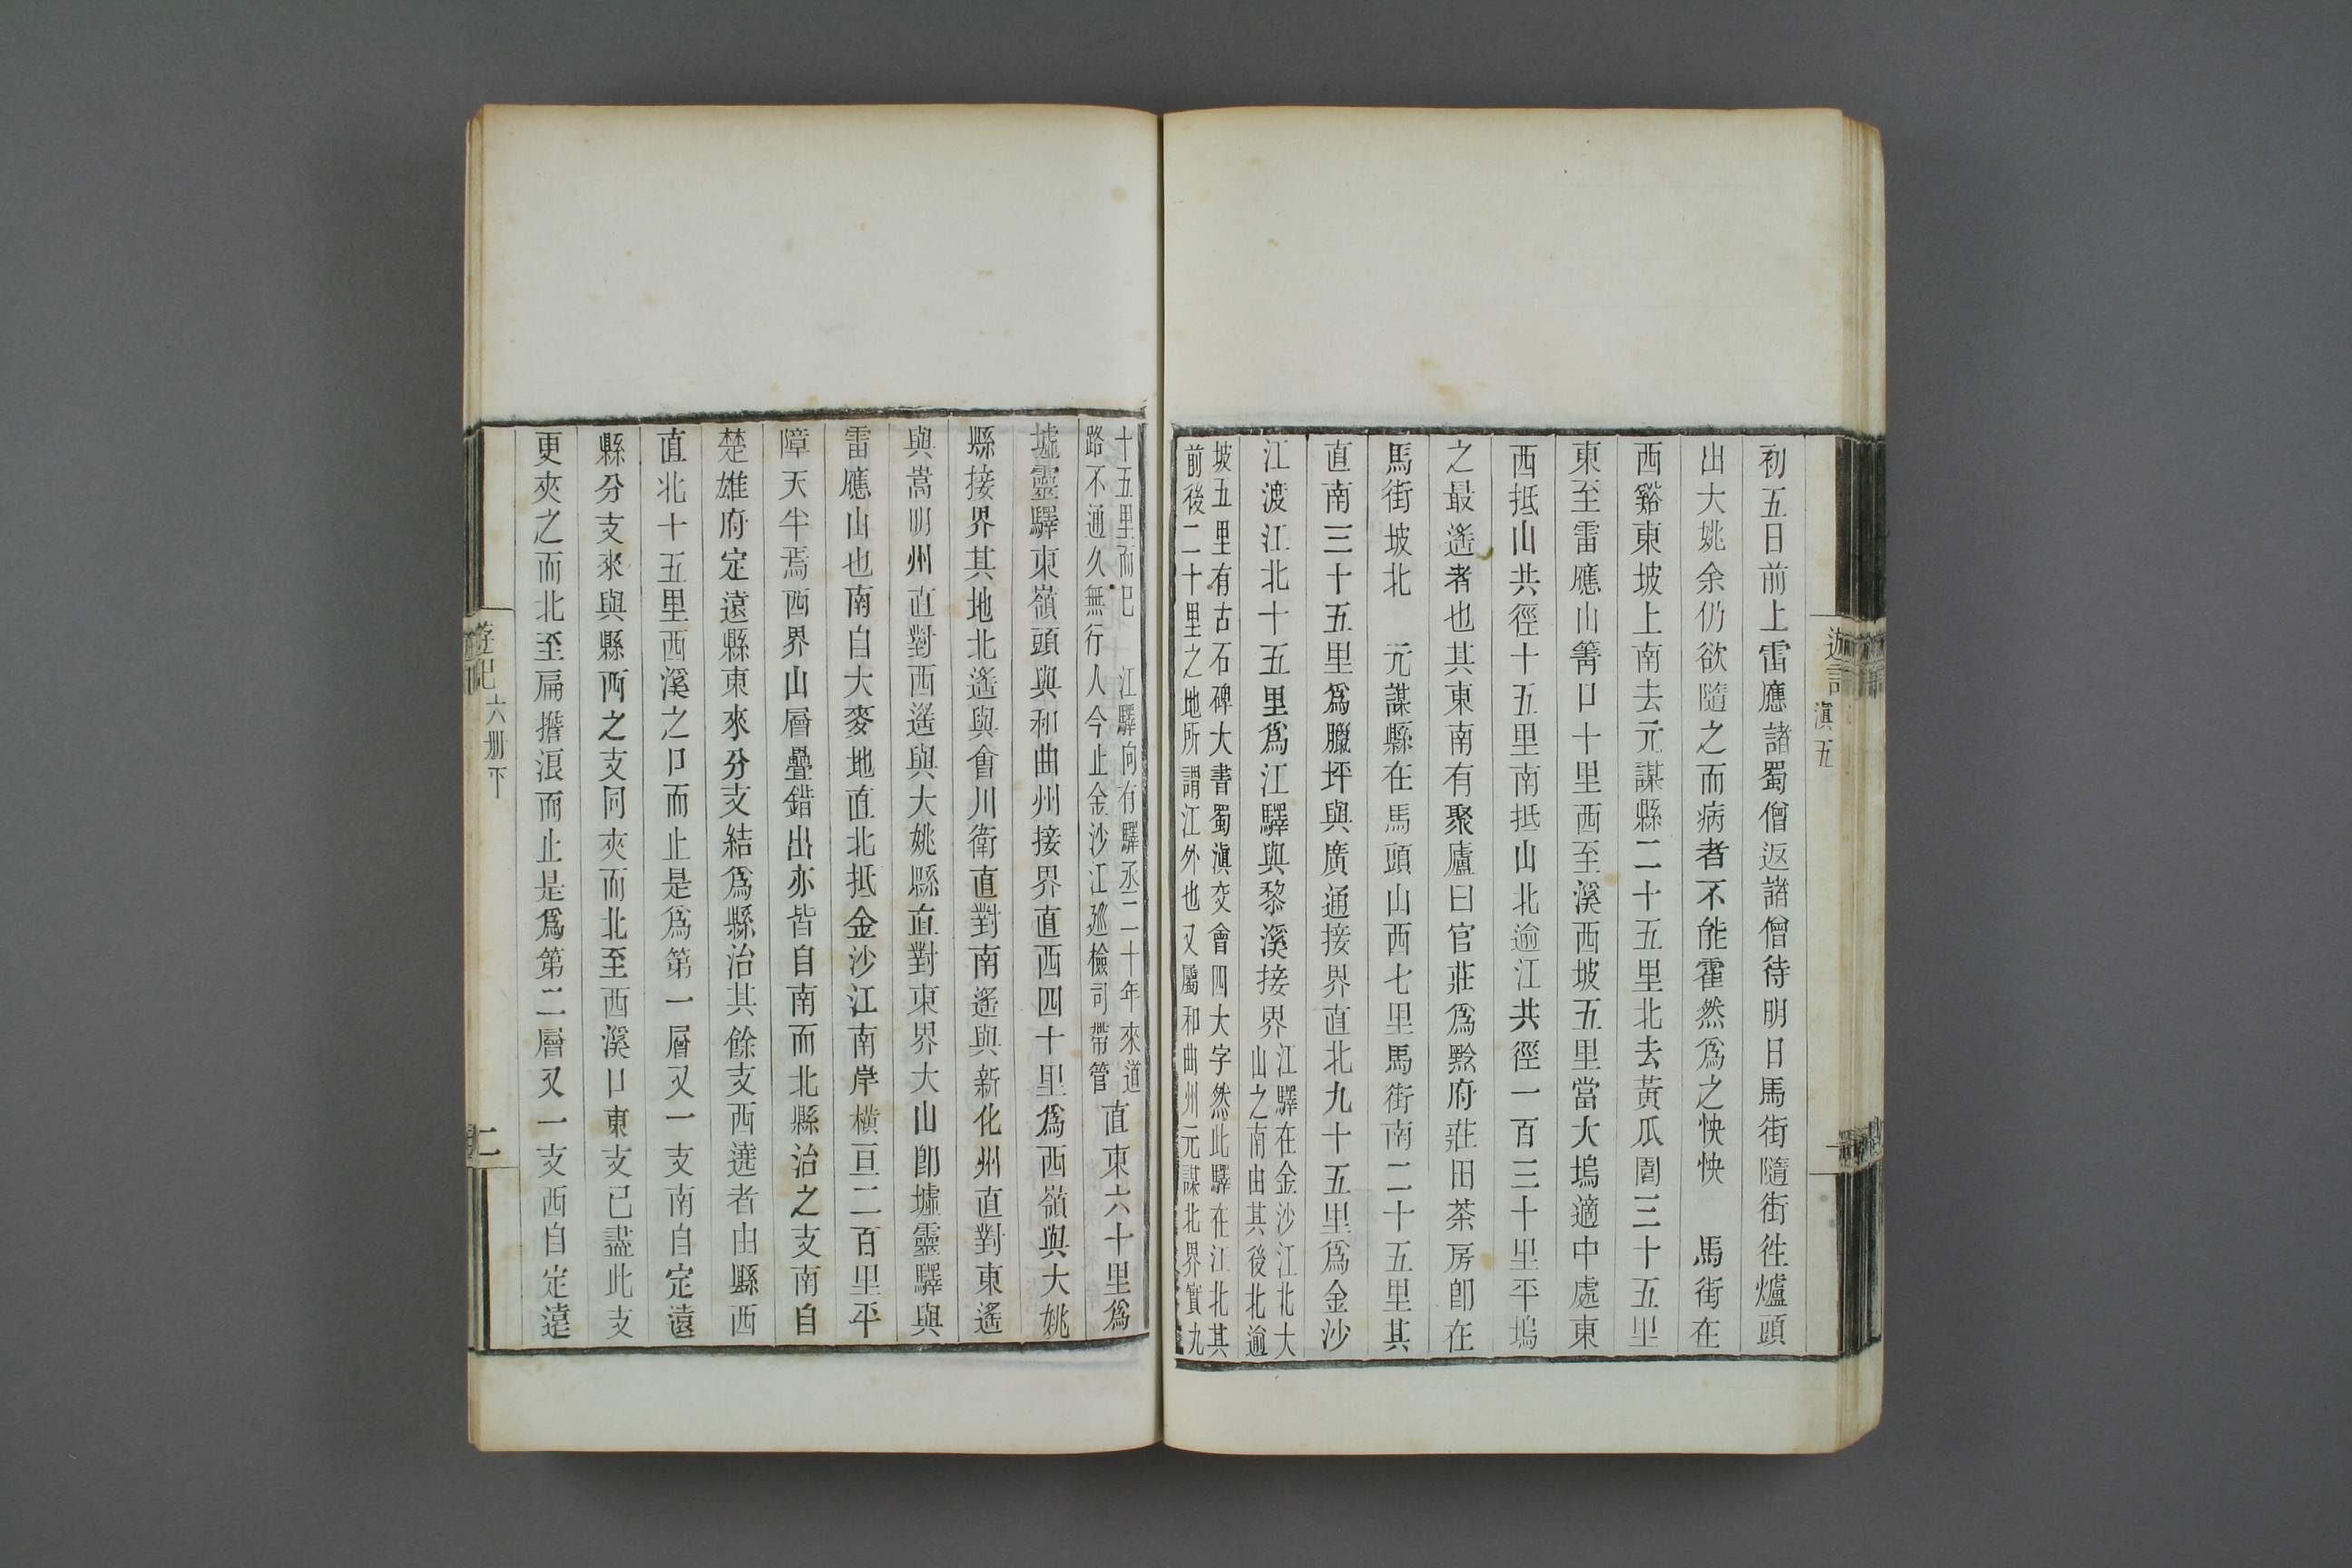 遊記
滇五
初五日前上雷應諸蜀僧返諸僧待明日馬街隨街徃爐頭
出大姚余仍欲隨之而病者不能霍然爲之怏怏 馬街在
西谿東坡上南去元謀縣二十五里北去黃瓜園三十五里
東至雷應山箐口十里西至溪西坡五里當大塢適中處東
西抵山共徑十五里南抵山北逾江共徑一百三十里平塢
之最遙者也其東南有聚廬曰官莊爲黔府莊田茶房卽在
馬街坡北 元謀縣在馬頭山西七里馬街南二十五里其
直南三十五里爲臘坪與廣通接界直北九十五里爲金沙
江渡江北十五里爲江驛與黎溪接界
江驛在金沙江北大
山之南由其後北逾
坡五里有古石碑大書蜀滇交會四大字然此驛在江北其
前後二十里之地所謂江外也又屬和曲州元謀北界實九
十五里而巳 江驛向有驛丞二十年來道
路不通久無行人今止金沙江廵檢司帶管
直東六十里爲
墟靈驛東嶺頭與和曲州接界直西四十里爲西嶺與大姚
縣接界其地北遙與會川衛直對南遙與新化州直對東遙
與嵩明州直對西遙與大姚縣直對東界大山卽墟靈驛與
雷應山也南自大麥地直北抵金沙江南岸橫亘二百里平
障天半焉西界山層疊錯出亦皆自南而北縣治之支南自
楚雄府定遠縣東來分支結爲縣治其餘支西遶者由縣西
直北十五里西溪之口而止是爲第一層又一支南自定遠
縣分支來與縣西之支同夾而北至西溪口東支已盡此支
更夾之而北至扁擔浪而止是爲第二層又一支西自定遠
遊記
六册下
二